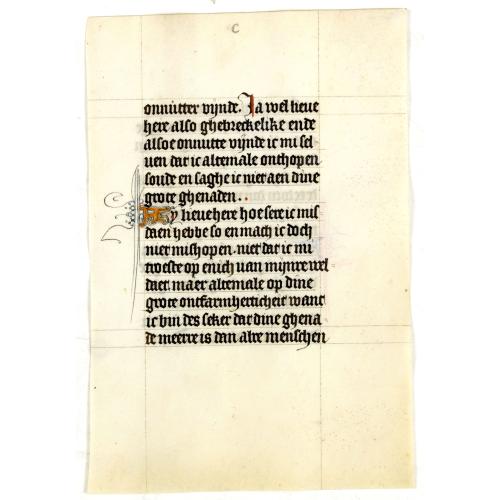 C
onnutter vynde. Ja wel lieue
here also ghebreckelike ende
also e onnutte vynde ic mi sel
uen dat ic altemale onthopen
soude en saghe ic niet aen dine
grote ghenaden..
Ay lieue here hoe sere ic mis
daen hebbe so en mach ic doch
niet mishopen. niet dat ic mi
troeste op enich uan mijnre wel
daet. maer altemale op dine
grote ontfarmherticheit want
ic bin des seker dat dine ghena
de meerre is dan alre menschen